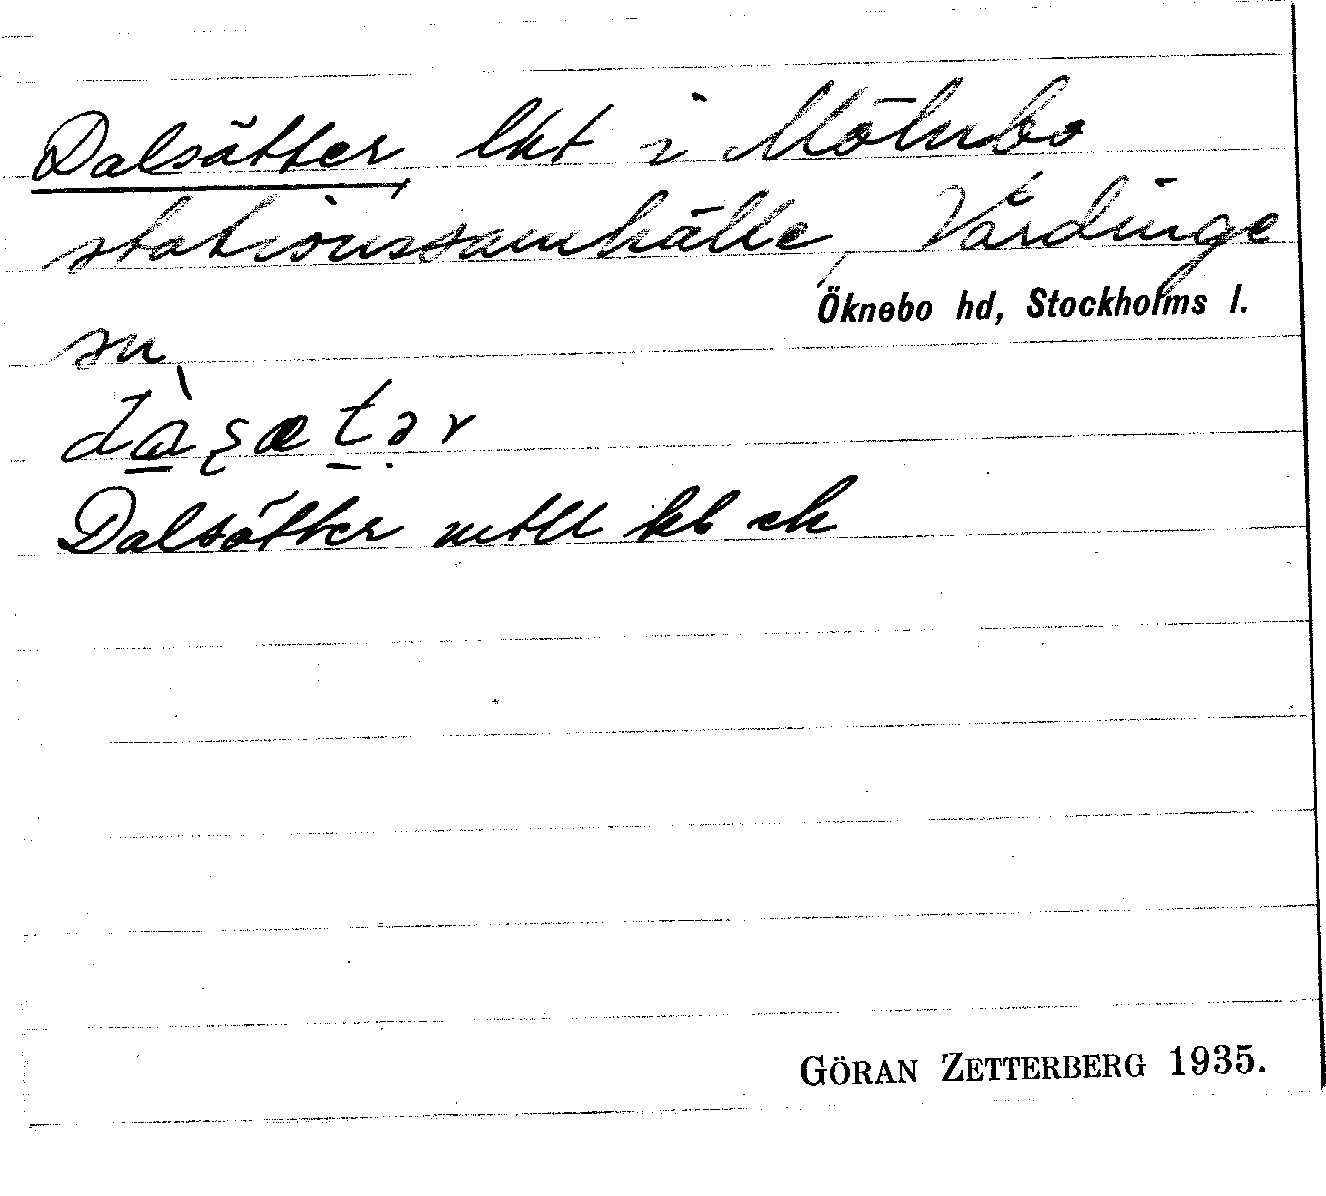 Dalsätter, lht i Mölnbo
stationssamhälle, Vårdinge
Öknebo hd, Stockholms l.
sn
Dalsätter mtll kb ek
GÖRAN ZETTERBERG 1935.